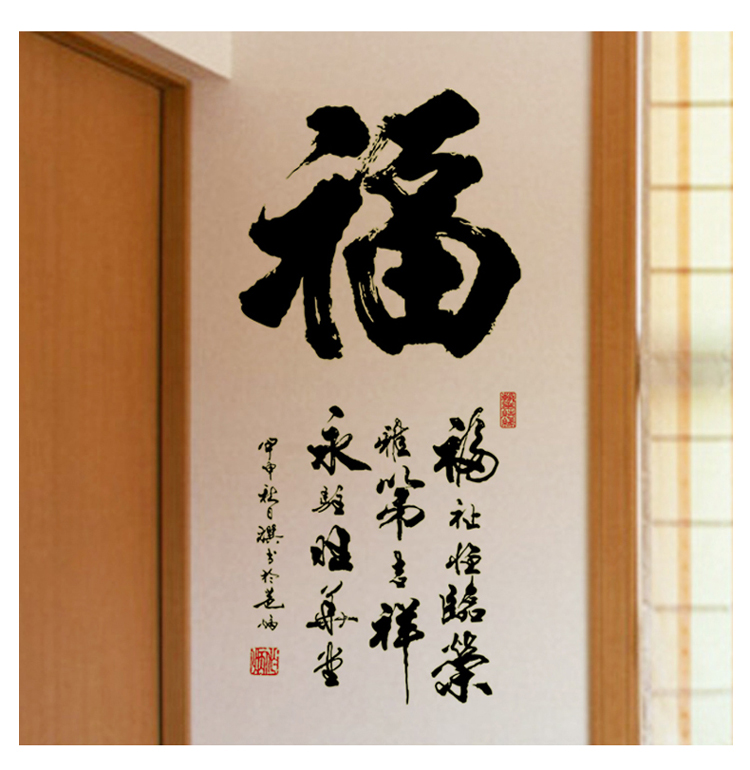 福
福祉恒臨榮
雅第吉祥
永駐旺華堂
甲申秋日撰書於